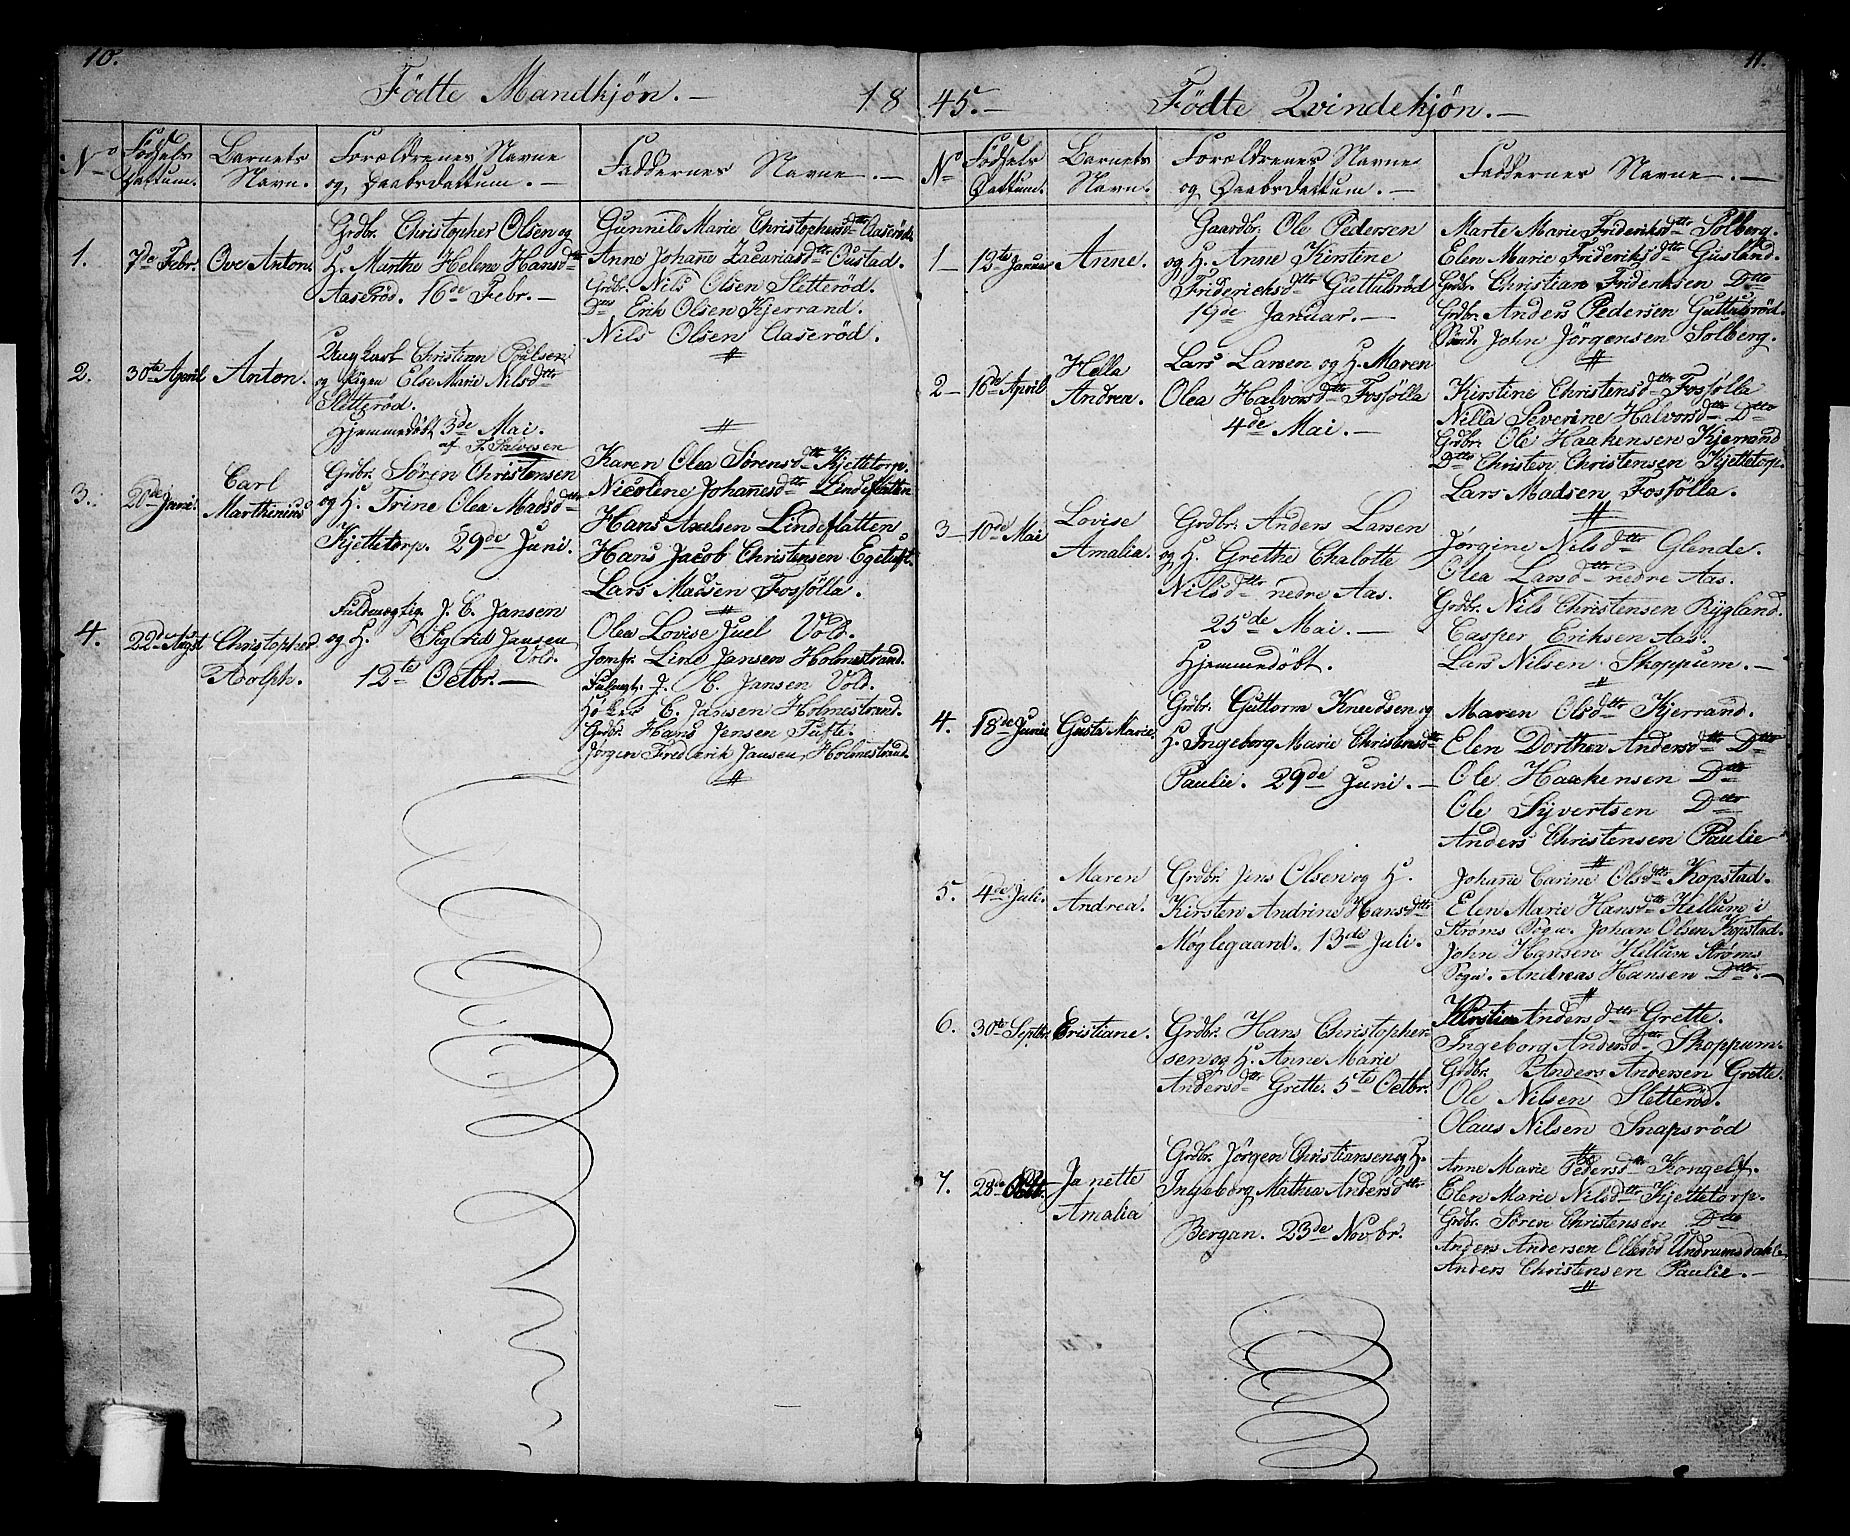 10.
Födte Mandkjön. — 18
No
Födsels Dattum.
Barnets Navn.
Forældrenes Navne og Daabsdattum. —
Faddernes Navne. —
1.
7de Febr.
Ove Anton.
Grdbr. Christopher Olsen og
H. Marthe Helene Hansdttr
Aaseröd. 16de Febr. —
Gunnild Marie Christophersdttr Aaseröd.
Anne Johañe Zacariasdttr Oustad.
Grdbr. Nils Olsen Sletteröd.
Dtto Erik Olsen Kjerrand.
Nils Olsen Aaseröd.
2.
30te April
Anton.
Ung Karl Christian Poulsen
og Pigen Else Marie Nilsdttr
Sletteröd.
Hjemmedöbt 3de Mai.
af F. Salvesen
3.
20de Juni.
Carl
Marthinius
Grdbr. Sören Christensen
og H. Trine Olea Madsdttr
Kjettetorp. 29de Juni.
Karen Olea Sørensdttr Kjettetorp.
Nicoline Johañesdttr Lindeflatten
Hans Axelsen Lindeflatten
Hans Jacob Christensen Egetuft.
Lars Madsen Fosfölla.
4.
22de Augst
Christopher
Adolph.
Fuldmægtig J. C. Jansen
og H. Sigrid Jansen
Vold.
12te Octbr. —
Olea Lovise Juel Vold.
Jomfr. Line Jansen Holmestrand.
Fulmgt. J. C. Jansen Vold.
Høker C. Jansen Holmestrand.
Grdbr. Hans Jensen Tufte.
Jörgen Frederik Jansen, Holmestrand.
11.
45. — Födte Qvindekjön. —
No
Födsels Dattum.
Barnets Navn.
Forældrenes Navne og Daabsdattum. —
Faddernes Navne. —
1 —
12te Januar
Anne.
Gaardbr. Ole Pedersen
og H. Anne Kirstine
Fridericksdttr Guttulsröd
19de Januar. —
Marte Marie Frideriksdttr Solberg.
Elen Marie Frideriksdttr Gusland.
Grdbr. Christian Frideriksen Dtto
Grdbr. Anders Pedersen Guttulsröd.
John Jörgensen Solberg.
2 —
16de April
Hella
Andrea.
Lars Larsen og H. Maren
Olea Halvorsdttr Fosfölla
4de Mai. —
Kirstine Christensdttr Fosfölla
Nilla Severine Halvorsdttr Dtto
Grdbr. Ole Haakensen Kjerrand
Dtto Christen Christensen Kjettetorp.
Lars Madsen Fosfölla.
3 —
10de Mai
Lovise
Amalia.
Grdbr. Anders Larsen
og H. Grethe Chalotte
Nilsdttr nedre Aas.
25de Mai. —
Hjemmedöbt.
Jørgine Nilsdttr Glende.
Olea Larsd nedre Aas.
Grdbr. Nils Christensen Rygland.
Casper Eriksen Aas.
Lars Nilsen Skoppum. —
4.
18de Junii
Gusta Marie.
Grdbr. Guttorm Knudsen og
H. Ingeborg Marie Christensdttr
Paulie. 29de Juni. —
Maren Olsdttr Kjerrand.
Elen Dorthea Andersdttr Dtto
Ole Haakensen Dtto
Ole Syvertsen Dtto
Anders Christensen Paulie
5.
4de Juli.
Maren
Andrea.
Grdbr. Jens Olsen og H.
Kirsten Andrine Hansdttr
Møglegaard. 13de Juli.
Johañe Carine Olsdttr Kopstad.
Elen Marie Hansdttr Hellum i
Strøms Sogn. Johan Olsen Kopstad.
John Hansen Hillum Strøms
Sogn. Andreas Hansen Dtto. —
6.
30te Septbr.
Cristiane.
Grdbr. Hans Christopher-
sen og H. Anne Marie
Andersdttr Grette. 5te Octbr.
Andersdttr Grette.
Ingeborg Andersdttr Skoppum.
Grdbr. Anders Andersen Grette.
Ole Nilsen Sletteröd.
Olaus Nilsen Snapsröd
7.
28de Octbr.
Janette
Amalia
Grdbr. Jörgen Christiansen og H.
Ingeborg Mathea Andersdttr
Bergan. 23de Novbr.
Anne Marie Pedersdttr Kongelf.
Elen Marie Nilsdttr Kjettetörp.
Grdbr. Søren Christensen Dtto
Anders Andersen Olleröd Undrumsdahle
Anders Christensen Paulie. —